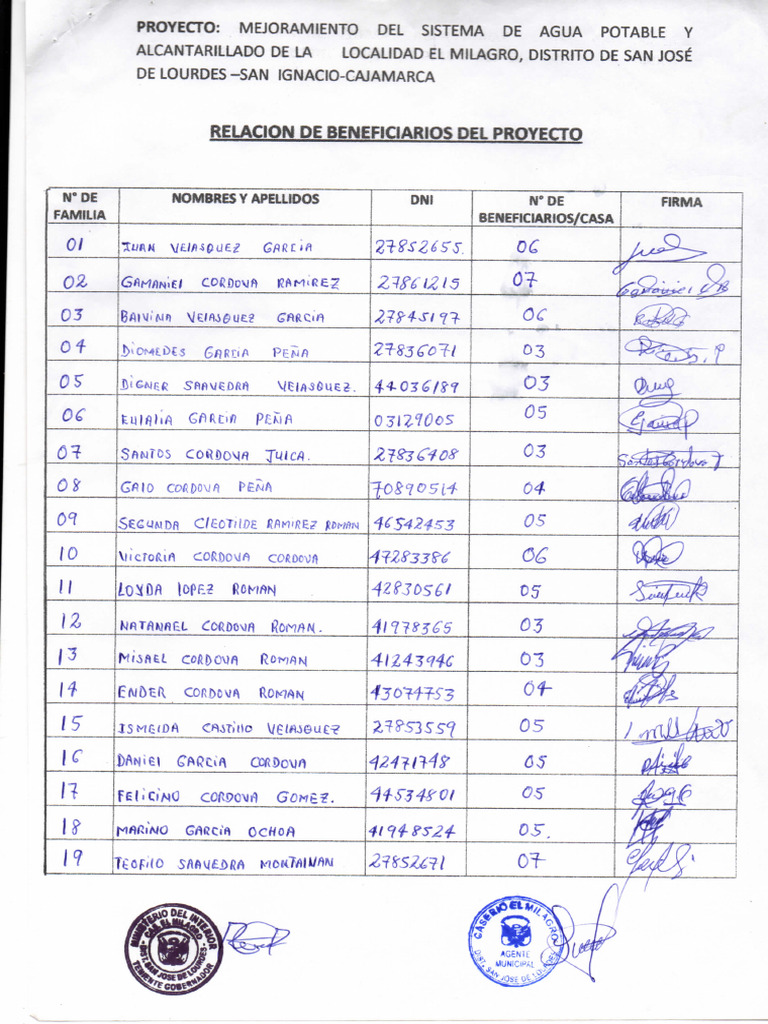 PROYECTO: MEJORAMIENTO DEL SISTEMA DE AGUA POTABLE Y
ALCANTARILLADO DE LA LOCALIDAD EL MILAGRO, DISTRITO DE SAN JOSÉ
DE LOURDES –SAN IGNACIO-CAJAMARCA
RELACION DE BENEFICIARIOS DEL PROYECTO
N° DE FAMILIA NOMBRES Y APELLIDOS DNI N° DE BENEFICIARIOS/CASA FIRMA
01 JUAN VELASQUEZ GARCIA 27852655. 06
02 GAMANIEL CORDOVA RAMIREZ 27861215 07
03 BALVINA VELASQUEZ GARCIA 27845197 06
04 DIOMEDES GARCIA PEÑA 27836071 03
05 DIGNER SAAVEDRA VELASQUEZ. 44036189 03
06 EULALIA GARCIA PEÑA 03129005 05
07 SANTOS CORDOVA JULCA. 27836408 03
08 GALO CORDOVA PEÑA 70890514 04
09 SEGUNDA CLEOTILDE RAMIREZ ROMAN 46542453 05
10 VICTORIA CORDOVA CORDOVA 47283386 06
11 LOYDA LOPEZ ROMAN 42830561 05
12 NATANAEL CORDOVA ROMAN. 41978365 03
13 MISAEL CORDOVA ROMAN 41243946 03
14 ENDER CORDOVA ROMAN 43074753 04
15 ISMELDA CASTILLO VELASQUEZ 27853559 05
16 DANIEL GARCIA CORDOVA 42471748 05
17 FELICINO CORDOVA GOMEZ. 44534801 05
18 MARINO GARCIA OCHOA 41948524 05.
19 TEOFILO SAAVEDRA MONTALVAN 27852671 07
MINISTERIO DEL INTERIOR
CAS. EL MILAGRO
DIST. SAN JOSE DE LOURDES
TENIENTE GOBERNADOR
CASERIO EL MILAGRO
AGENTE
MUNICIPAL
DIST. SAN JOSE DE LOURDES